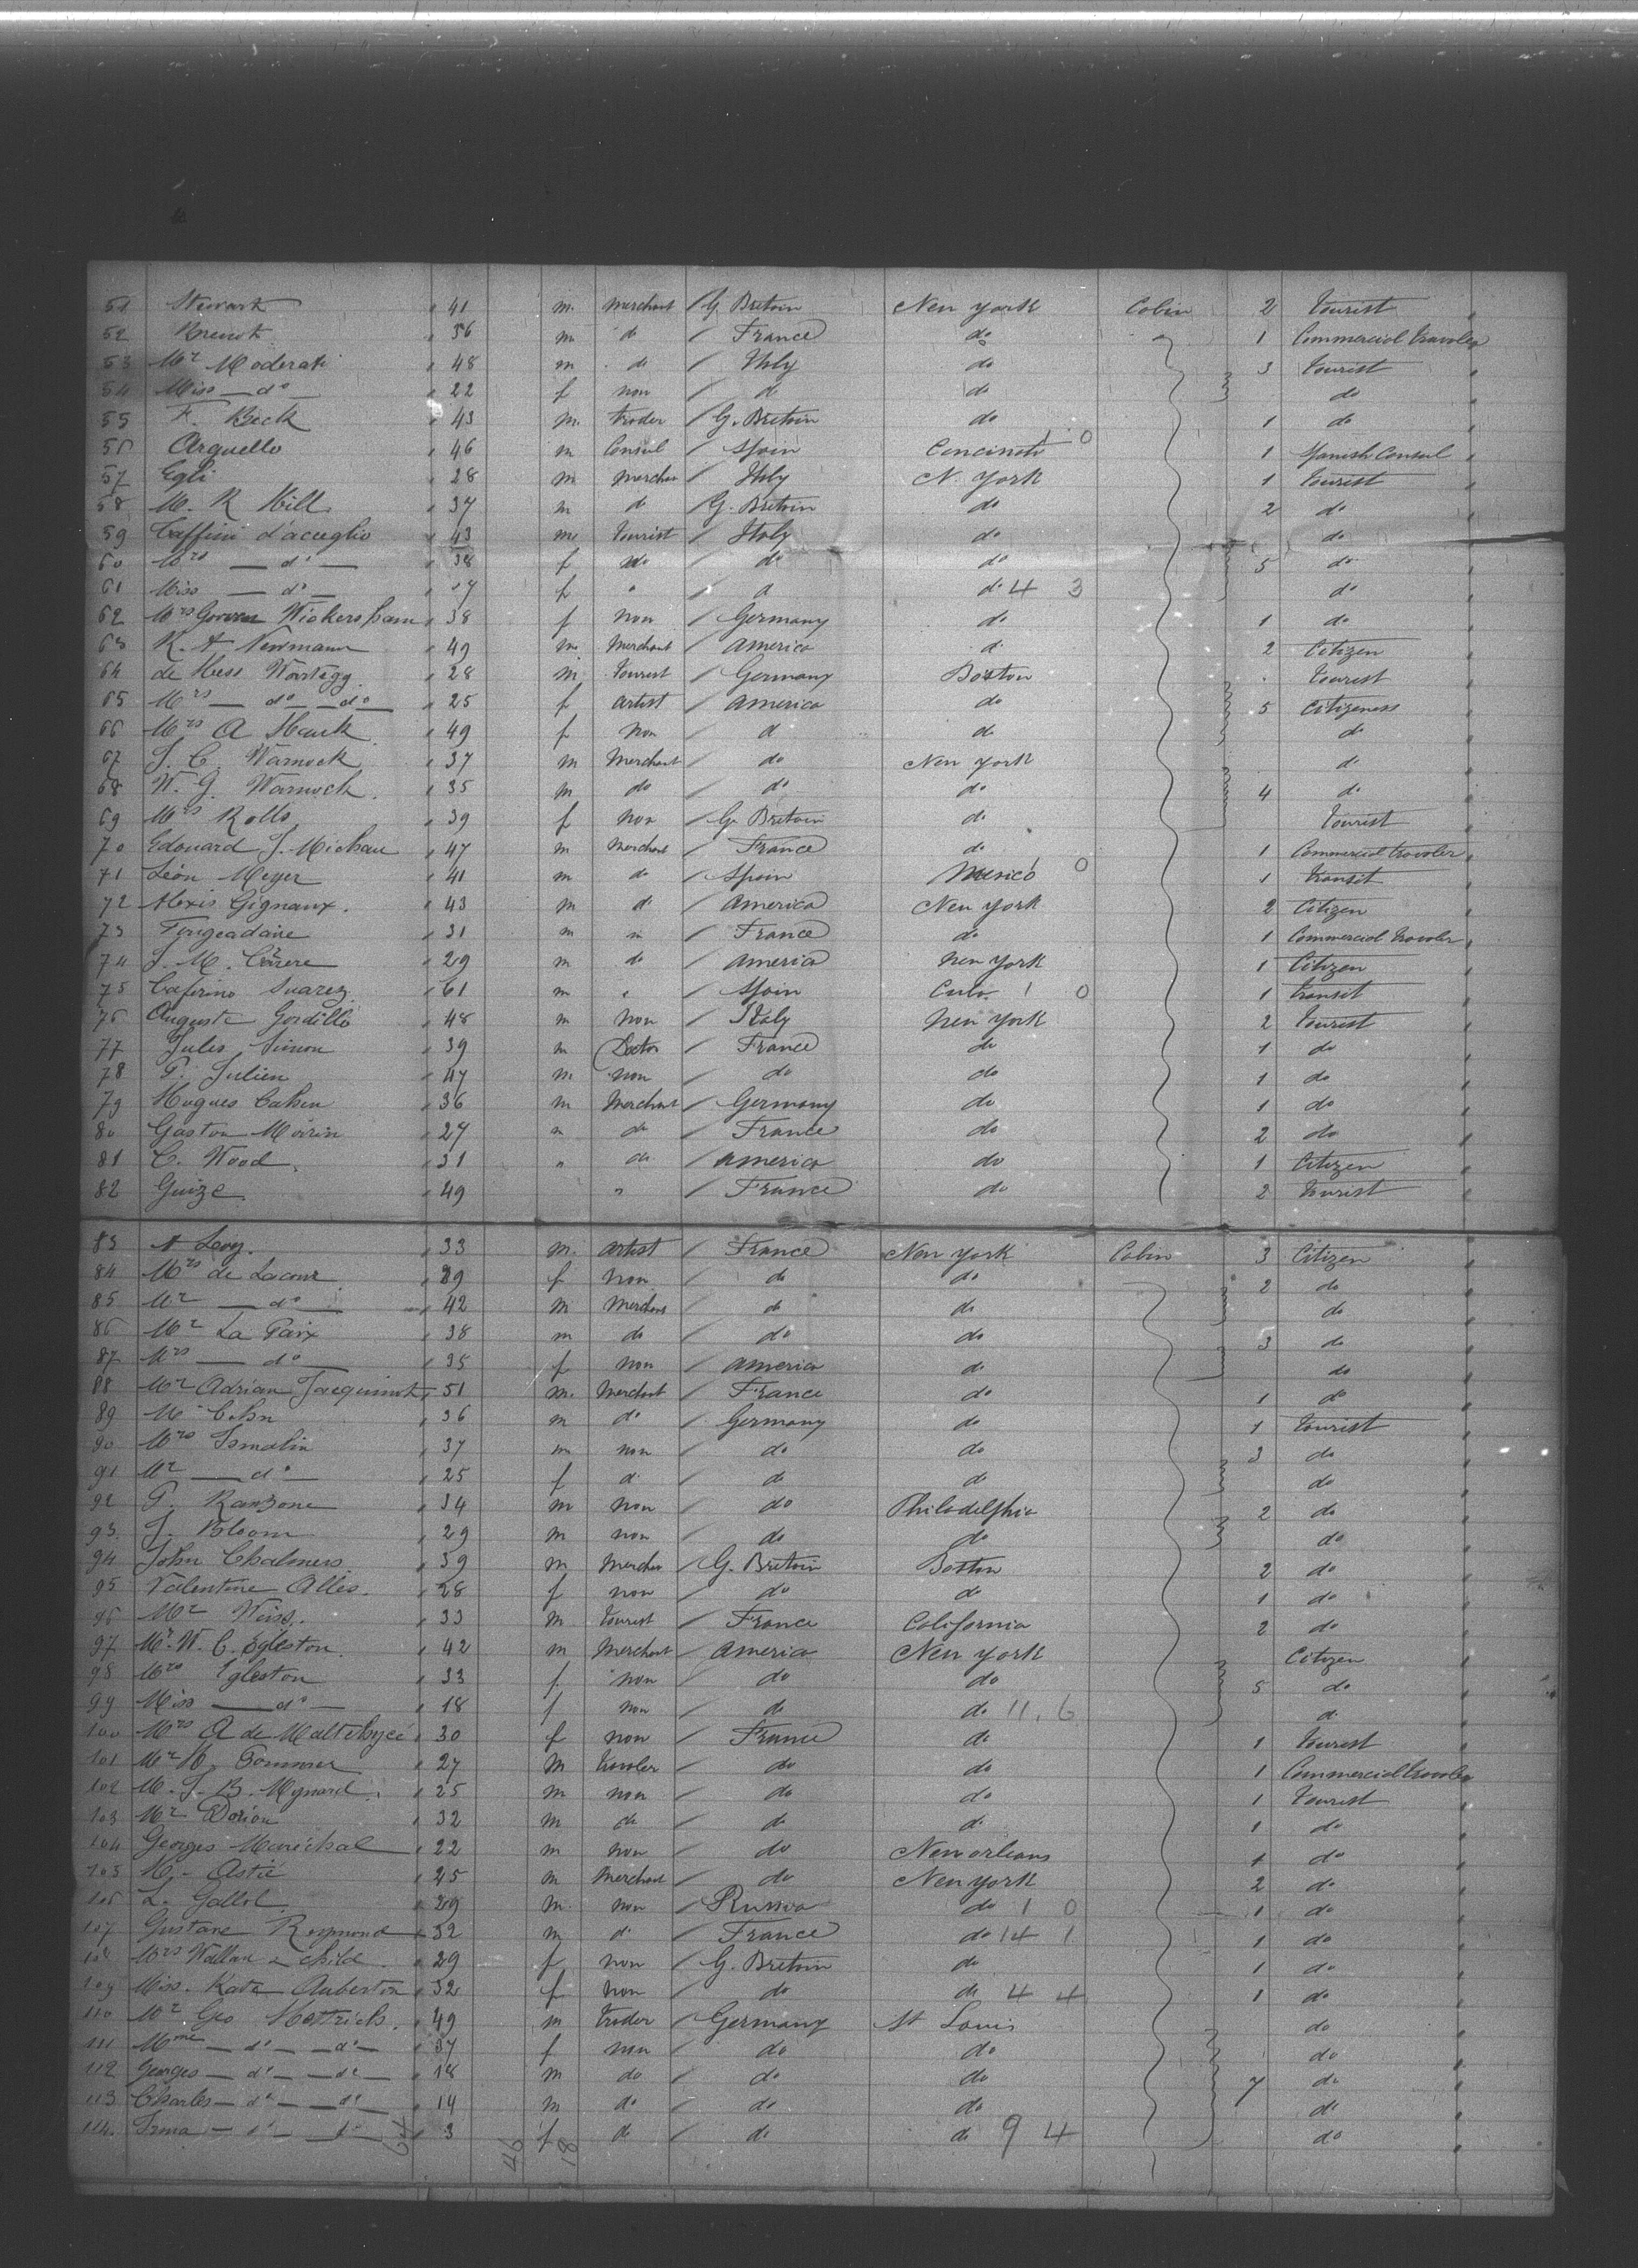 51 Stewart 41 m. merchant G. Bretoin New York Cabin 2 tourist
52 Brenot 36 m do France do 1 Commercial traveler
53 Mr Moderati 48 m do Italy do 3 tourist
54 Miss — do — 22 f non d do do
55 F. Beck 43 m. trader G. Bretoin do 1 do
56 Arguello 46 m Consul Spain Concinati 1 0 1 Spanish Consul
57 Egli 28 m merchan Italy N. York 1 tourist
58 M. R Hill 37 m do G. Bretoin do 2 do
59 Taffini d'aceglio 43 m tourist Italy do do
60 Mrs — do — 38 f do do do 5 do
61 Miss — do — 17 f " d do 4 3 do
62 Mrs Wickersham 38 f non Germany do 1 do
63 R. A Newmann 49 m Merchant america d. 2 Citizen
64 de Hess Wartegg 28 m. tourist Germany Boston tourist
65 Mrs — do — do — 25 f artist america do 5 Citizeness
66 Mrs A Hauk 49 f non d do do
67 J. C. Warnock 37 m Merchant do New York do
68 W. G. Warnock 35 m do do do 4 do
69 Mrs Rollo 39 f non G. Bretoin do tourist
70 Edouard J. Michau 47 m Merchant France do 1 Commercial traveler
71 Léon Meyer 41 m do Spain Mexico 1 0 1 transit
72 Alexis Gignaux. 43 m do america New York 2 Citizen
73 31 m " France do 1 Commercial traveler
74 J. M. 29 m do america New York 1 Citizen
75 Caferino Suarez 61 m " Spain Cuba 1 0 1 transit
76 Auguste Gordillo 48 m non Italy New York 2 tourist
77 Jules Simon 39 m Doctor France do 1 do
78 P. Julien 47 m. non do do 1 do
79 Hugues Cahen 36 m Merchant Germany do 1 do
80 Gaston Morin 27 " do France do 2 do
81 C. Wood 31 " do america do 1 Citizen
82 Guize 49 " France do 2 tourist
83 A Levy. 33 m. artist France New York Cabin 3 Citizen
84 Mrs de Lacour 29 f non do do 2 do
85 Mr — do — 42 m Merchant do do do
86 Mr La Paix 38 m do do do 3 do
87 Mrs — do — 35 f non america do do
88 Mr Adrian Jacquinot 51 m. Merchant France do 1 do
89 M. Cohn 36 m do Germany do 1 tourist
90 Mrs Ismalin 37 m non do do 3 do
91 Mr — do — 25 f d do do do
92 P. Ranzone 34 m non do Philadelphia 2 do
93. J. Bloom 29 m non do do do
94 John Chalmers 39 m Merchan G. Bretoin Boston 2 do
95 Valentine Alles. 28 f non do do 1 do
96 Mr Weiss. 33 m tourist France California 2 do
97 Mr. W. C. Egleston 42 m Merchant america New York Citizen
98 Mrs Egleston 33 f non do do 5 do
99 Miss — do — 18 f non do do 11. 6 d.
100 Mrs A de 30 f non France do 1 tourist
101 Mr H. Sommer 27 m traveler do do 1 Commercial traveler
102 M. J. B. Mignard. 25 m non do do 1 tourist
103 Mr Dorion 32 m do do do 1 do
104 Georges Maréchal 22 m non do New orleans 1 do
105 M. Astié 45 m Merchant do New York 2 do
106 L. Gallot 29 m. non Russia do 1 0 1 do
107 Gustave Raymond 32 m d. France do 14 1 1 do
108 Mrs Wallan & child 29 f non G. Bretoin do 1 do
109 Miss. Kate Auberton 32 f non do do 4 4 1 do
110 Mr Geo 49 m trader Germany St Louis do
111 Mme — do — do — 37 f non do do do
112 Georges — do — do — 18 m do do do 7 do
113 Charles — do — do — 14 m do do do do
114. Irma — do — do — 3 f do do do 9 4 do
64 46 18